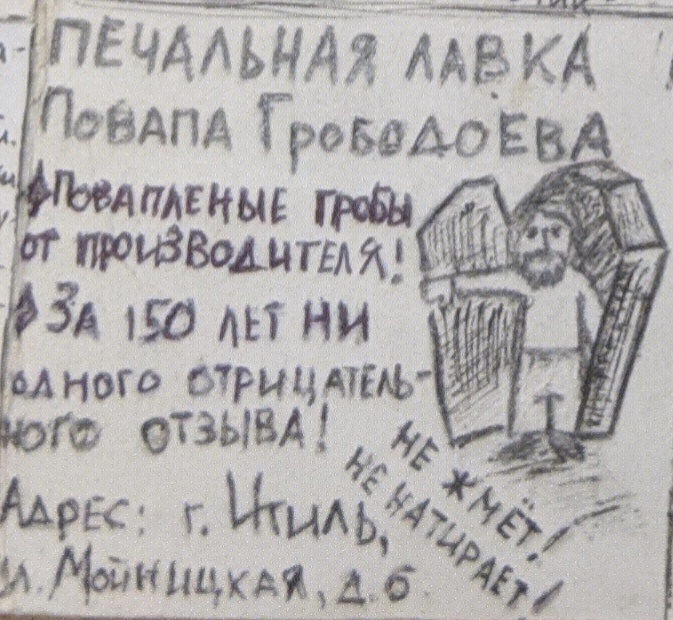 ПЕЧАЛЬНАЯ ЛАВКА
Повапа Грободоева
Повапленые гробы
от производителя!
За 150 лет ни
одного отрицатель-
ного отзыва!
Не жмёт!
Не натирает!
Адрес: г. Итиль,
ул. Мойницкая, д. 6